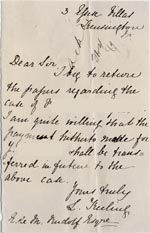 3
Villas
Kensington
Dear Sir
I beg to return
the papers regarding the
case of
I am quite willing that the
payment hitherto made for
shall be trans-
ferred in future to the
above case.
Yours truly
E. de M. Rudolf Esqre